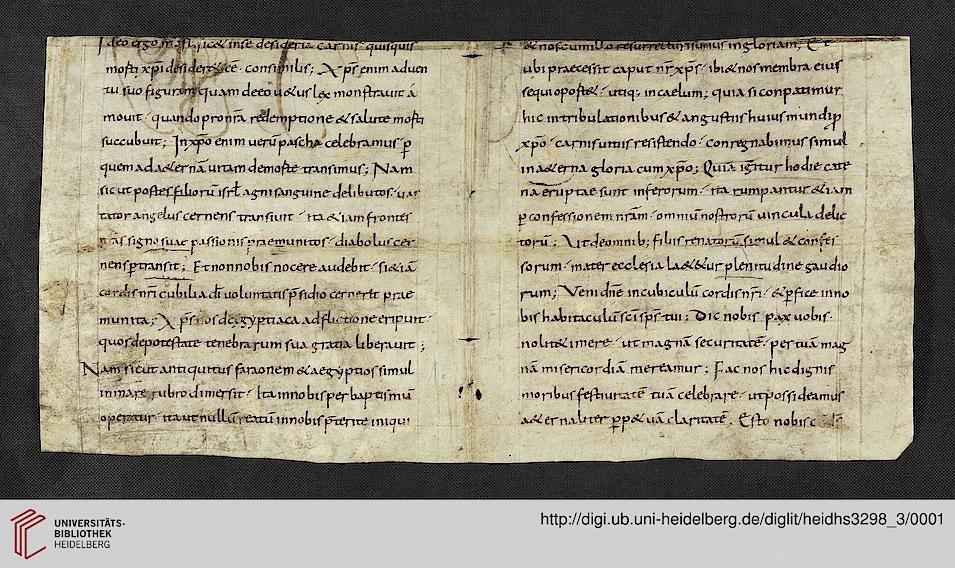 Ideo ergo
desideria carnis quisquis
morti xp̄i desider& eē consimilis; Xp̄s enim aduen
tu suo figuram quam deeo u&us lex monstrauit a
mouit · quando pronr̄a redemptione & salute morti
succubuit; In xp̄o enim uerū pascha celebramus ꝑ
quem ad a&ernā uitam demorte transimus; Nam
sicut postes filiorū isrl̄ agni sanguine delibutos · uas
tator angelus cernens transiuit · ita & iam frontes
nr̄as signo suae passionis praemunitos · diabolus cer
nens ꝑtransit; Et non nobis nocere audebit · si & iā
cordis nr̄i cubilia dī uoluntatis p̄sidio cernerit prae
munita; Xp̄s nos de egyptiaca adflictione eripuit ·
quos de potestate tenebrarum sua gratia liberauit;
Nam sicut antiquitus faraonem & aegyptios simul
in mare rubro dimersit · Ita in nobis per baptismū
operatur · ita ut nullū reatū in nobis p̄terite iniqui
& nos cum illo resurrecturi sumus in gloriam; Et
ubi praecessit caput nr̄ xp̄s · ibi & nos membra eius
sequi oport& · utiq; in caelum; quia si conpatimur
hic in tribulationibus & angustiis huius mundi ꝓ
xp̄o · carnis uitiis resistendo · conregnabimus simul
in a&erna gloria cum xp̄o; Quia igitur hodie cate
nae ruptae sunt inferorum · ita rumpantur & iam
ꝑ confessionem nr̄am · omniū nostrorū uincula delic
torū; Ut de omnib; filiis renatorū simul & confes
sorum · mater ecclesia la&&ur plenitudine gaudio
rum; Veni dn̄e in cubiculū cordis nr̄i · & ꝑfice in no
bis habitaculū sc̄i sp̄s tui; Dic nobis pax uobis ·
nolite timere · ut magnā securitatē · per tuā mag
nā misericordiā mereamur; Fac nos hic dignis
moribus festiuitatē tuā celebrare · ut possideamus
a&ernaliter ꝑp&uā claritatē · Esto nobis
UNIVERSITÄTS-
BIBLIOTHEK
HEIDELBERG
http://digi.ub.uni-heidelberg.de/diglit/heidhs3298_3/0001